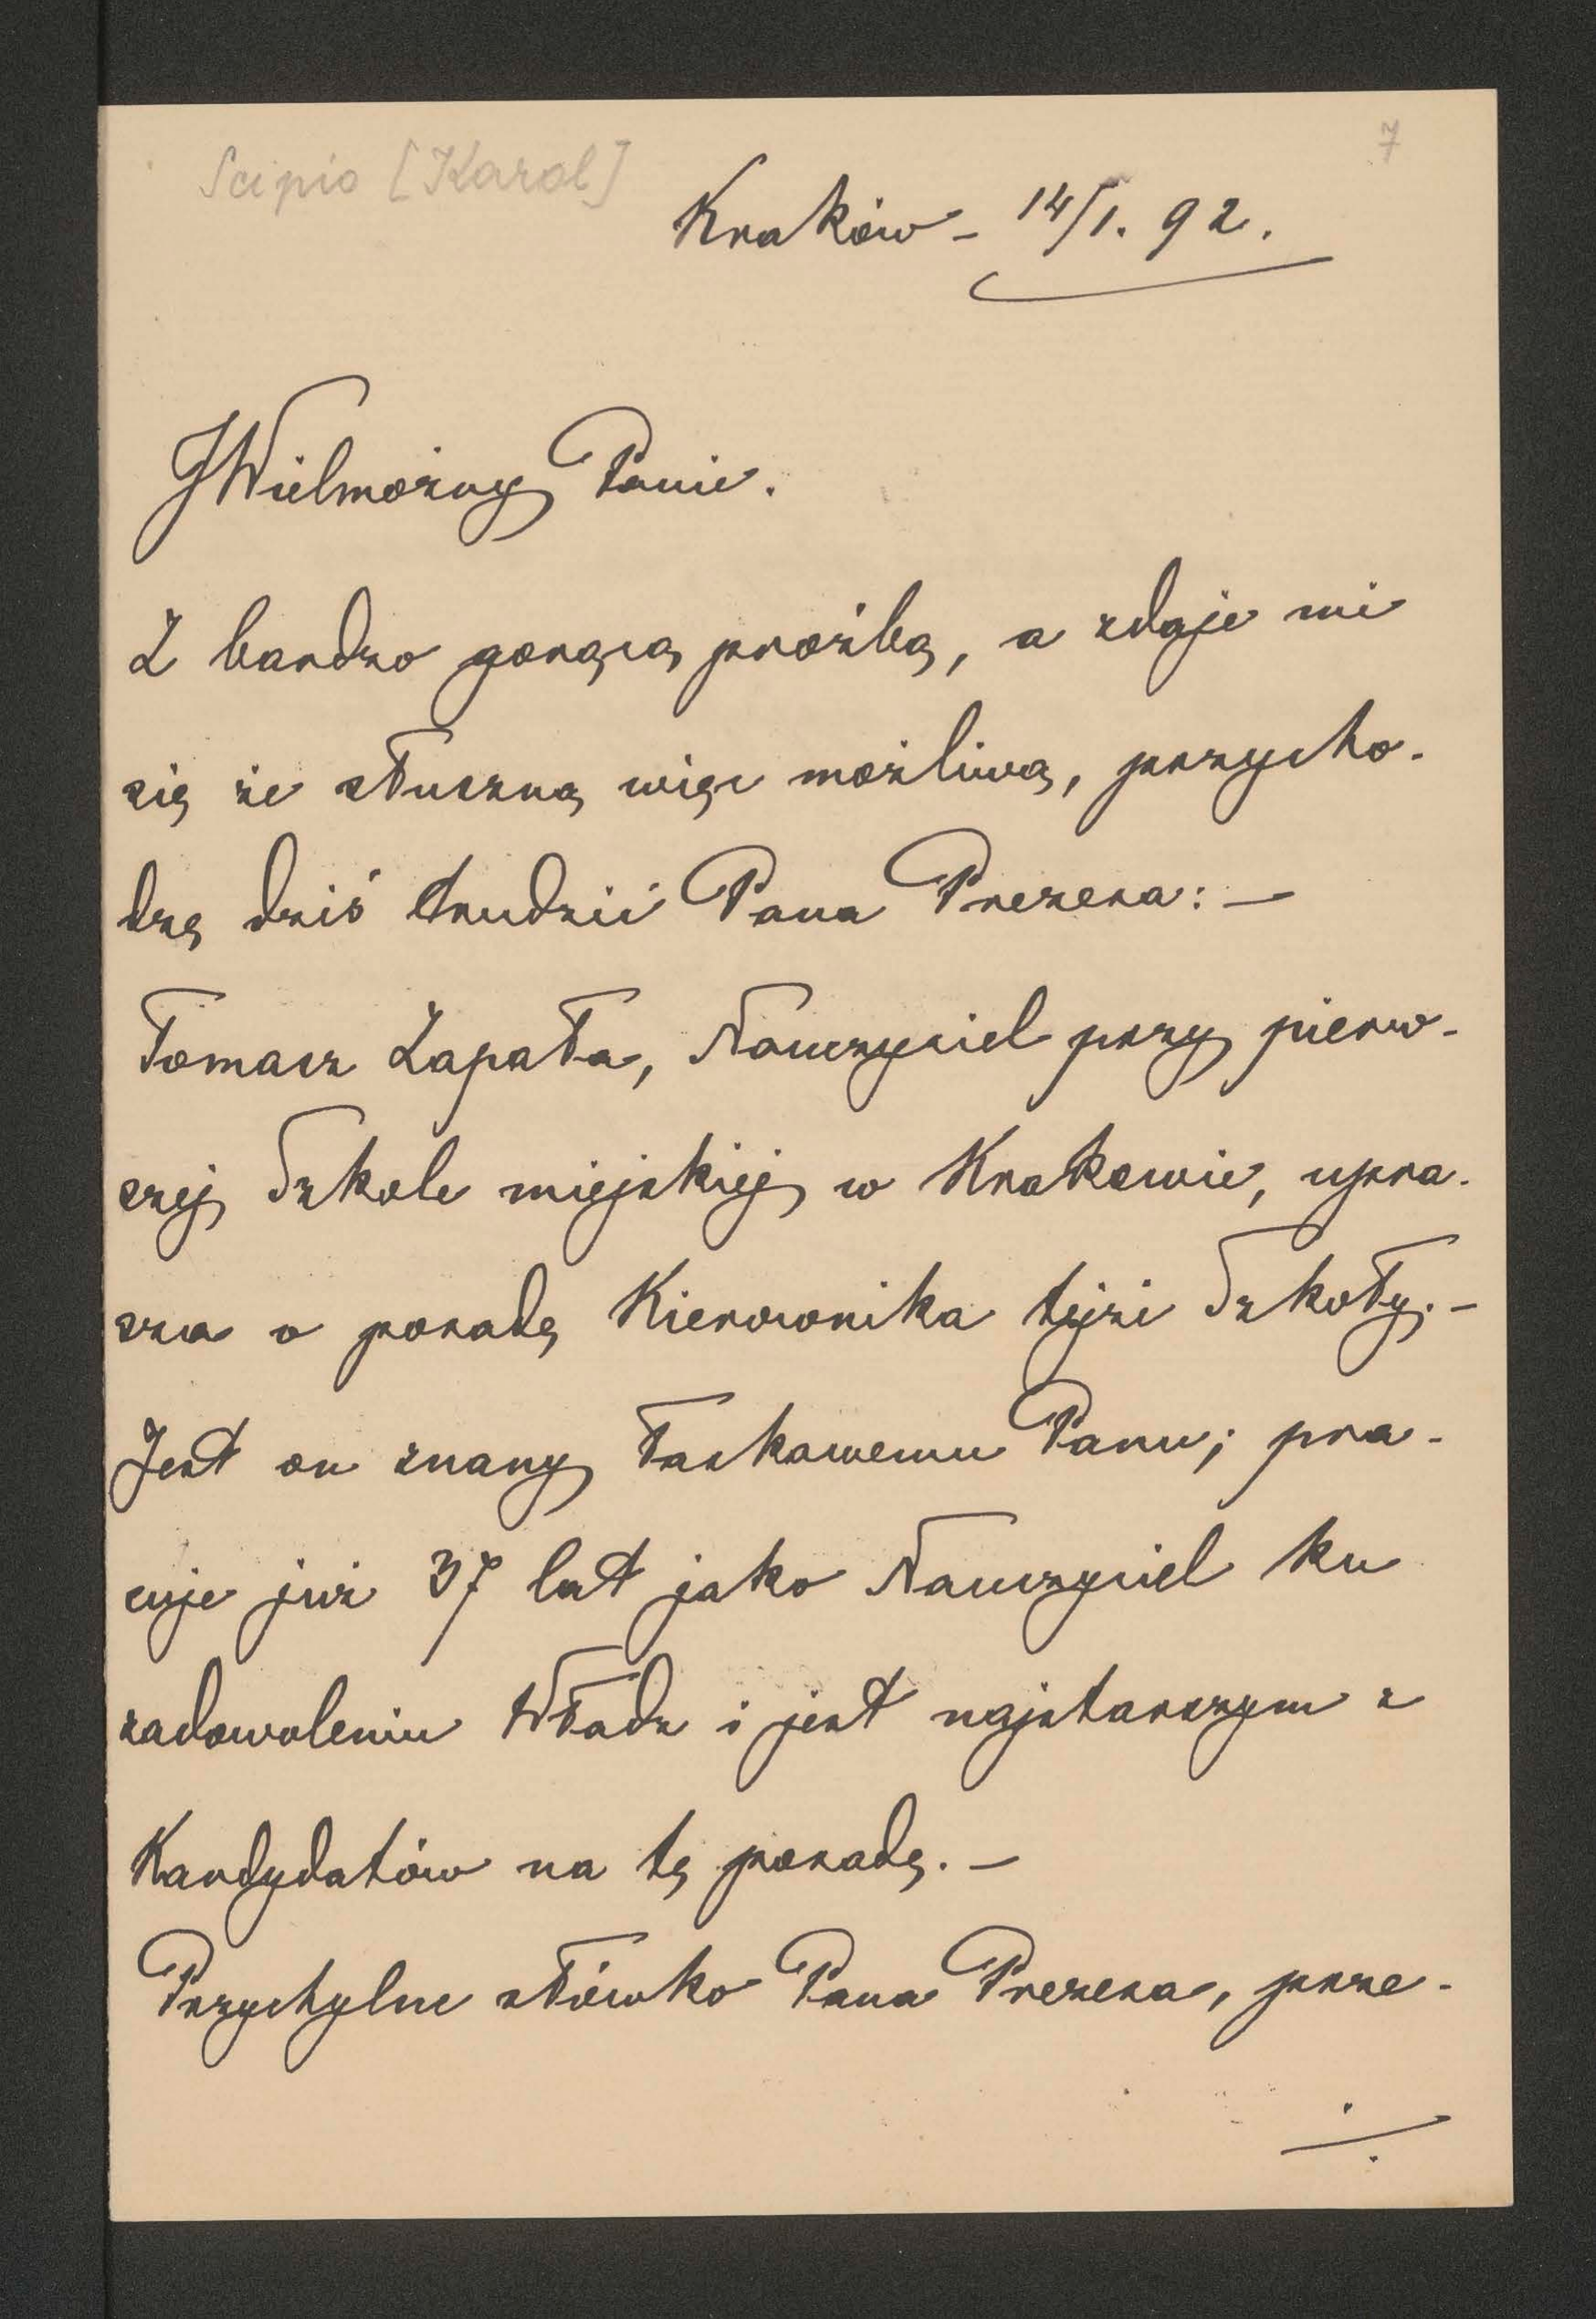 Scipio [Karol]
7
Kraków - 14/1. 92.
JWielmożny Panie.
Z bardzo gorącą prośbą, a zdaje mi
się że słuszną więc możliwą, przycho-
dzę dziś trudzić Pana Prezesa: —
Tomasz Zapała, Nauczyciel przy pierw-
szej Szkole miejskiej w Krakowie, upra-
sza o posadę Kierownika tejże Szkoły. -
Jest on znany Łaskawemu Panu; pra-
cuje już 37 lat jako Nauczyciel ku
zadowoleniu Władz i jest najstarszym z
Kandydatów na tę posadę. -
Przychylne słówko Pana Prezesa, prze-
./.